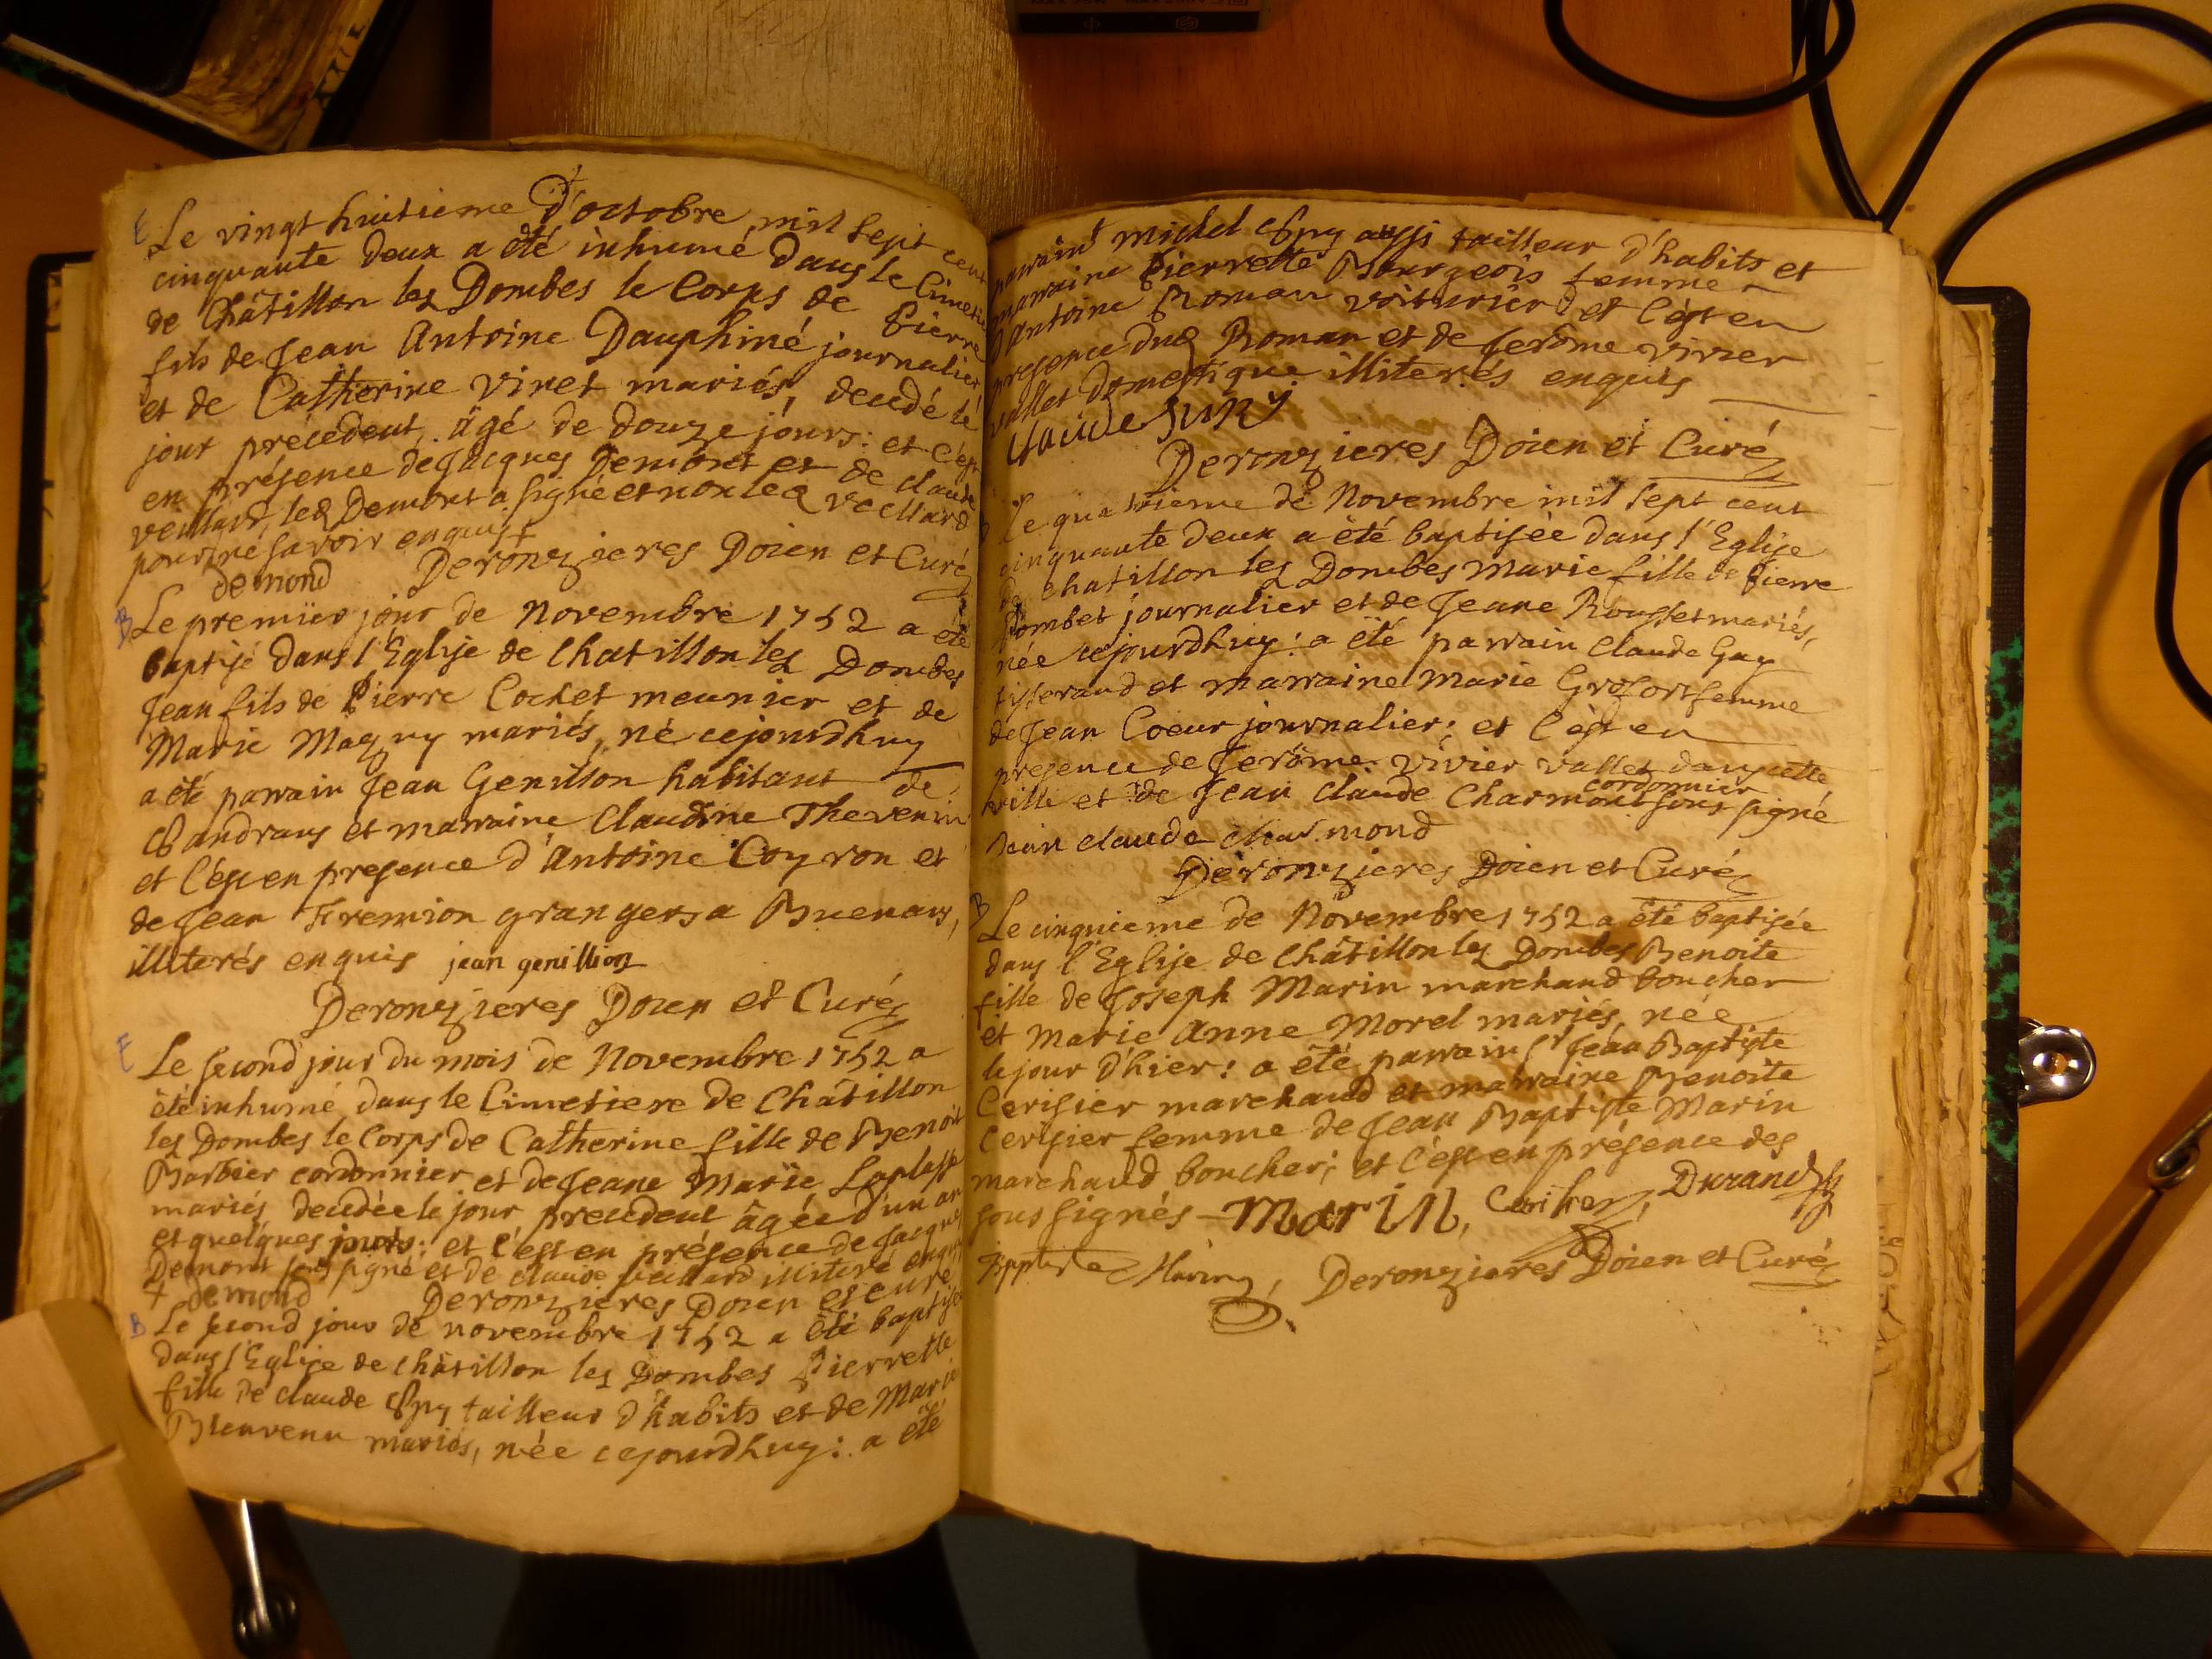 E Le vingt huitieme d'octobre mil sept cent
cinquante deux a été inhumé dans le Cimetie
de Châtillon les Dombes le Corps de Pierre
fils de Jean Antoine Dauphiné journalier
et de Catherine Viret mariés, decedé le
jour précedent, âgé de douze jours: et c'est
en présence de Jacques Demont et de claude
veillard, led Demont a signé et non led veillard
pour ne savoir enquis +
Deronzieres Doien et Curé
demond
B Le premier jour de Novembre 1752 a été
baptisé dans l'Eglise de Chatillon les Dombes
Jean fils de Pierre Cochet meunier et de
Marie Mazuy mariés, né cejourdhuy
a été parrain Jean Genillon habitant de
Chandrans et marraine Claudine Thevenin
et c'est en presence d'Antoine Coyron et
de Jean Fremion grangers a Buenans,
illiterés enquis jean genillion
Deronzieres Doien et Curé
E Le second jour du mois de Novembre 1752 a
été inhumé dans le Cimetiere de Châtillon
les Dombes le Corps de Catherine fille de Benoit
Barbier cordonnier et de Jeane Marie
mariés decedée le jour precedent âgée d'un an
et quelques jours: et c'est en présence de Jacques
Demont sous signé et de claude veillard illiteré enquis
+ demond Deronzieres Doien et curé
B Le second jour de novembre 1752 a été baptisée
dans l'Eglise de châtillon les Dombes Pierrette
fille de claude Spy tailleur d'habits et de Marie
Bienvenu mariés, née cejourdhuy: a été
parain michel Spy aussi tailleur d'habits et
maraine Pierrette Bourgeois femme
d'Antoine Roman voiturier et c'est en
presence dud Roman et de Jerôme vivier
vallet domestique illiterés enquis
Claude
Deronzieres Doien et Curé
B Le quatrieme de Novembre mil sept cent
cinquante deux a été baptisée dans l'Eglise
de chatillon les Dombes Marie fille de Pierre
Pombet journalier et de Jeane Rousset mariés,
née cejourdhuy: a été parrain Claude Guy
tisserand et marraine Marie Grosfort femme
de Jean Coeur journalier; et c'est en
presence de Jerôme vivier vallet dans cette
cordonnier
ville et de Jean claude Charmont sous signé
Jean claude charmond
Deronzieres Doien et Curé
B Le cinquieme de Novembre 1752 a été baptisée
dans l'Eglise de Châtillon les Dombes Benoite
fille de Joseph Marin marchand boucher
et Marie Anne Morel mariés née
le jour d'hier: a été parrain Sr Jean Baptiste
Cerisier marchand et marraine Benoite
Cerisier femme de Jean Baptiste Marin
marchand boucher; et c'est en présence des
sous signés Marin, Cerisier, Durand
Marin, Deronzieres Doien et Curé